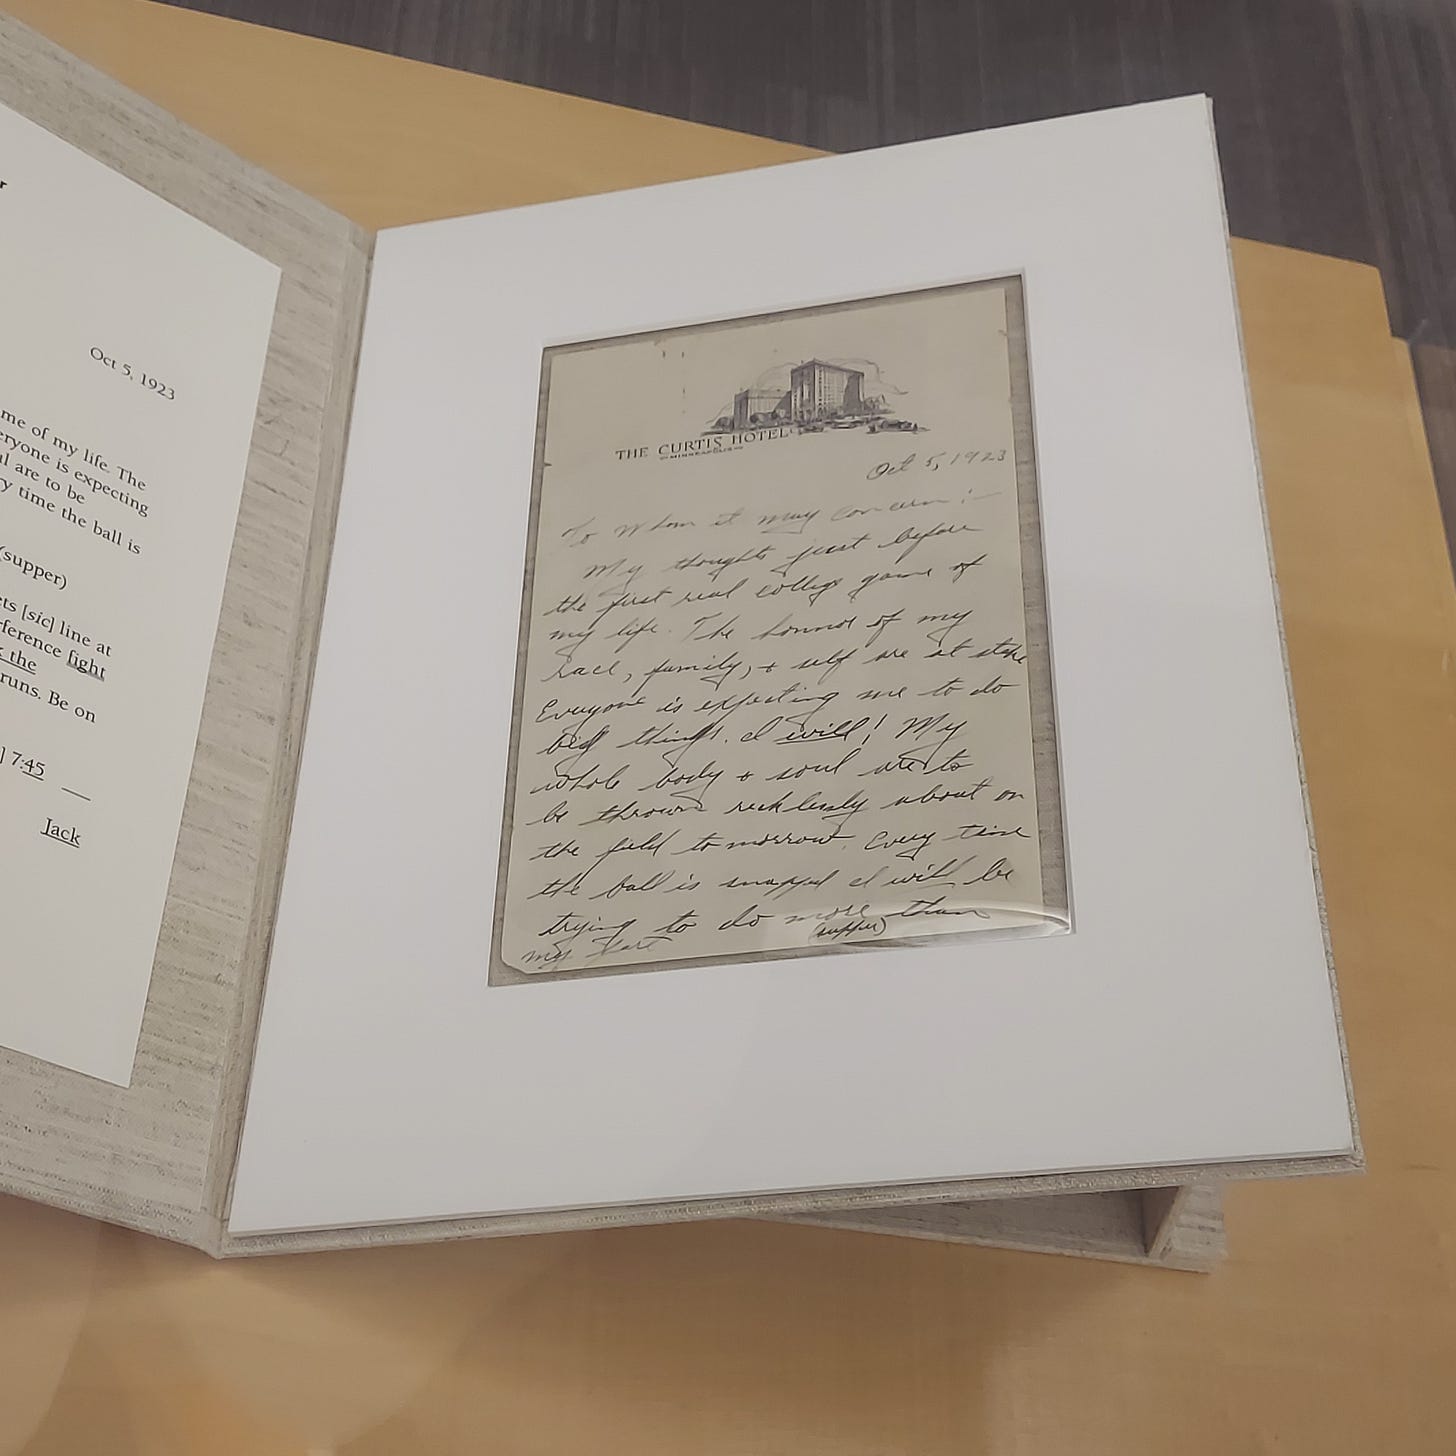 r
Oct 5, 1923
me of my life. The
eryone is expecting
ul are to be
ry time the ball is
(supper)
ets [sic] line at
ference fight
k the
runs. Be on
] 7:45
Jack
THE CURTIS HOTEL
MINNEAPOLIS
Oct 5, 1923
To Whom it may concern:—
My thoughts just before
the first real college game of
my life. The honnor of my
race, family, & self are at stake
Everyone is expecting me to do
big things. I will! My
whole body & soul are to
be thrown recklessly about on
the field tomorrow. Every time
the ball is snapped I will be
trying to do more than
my part (supper)